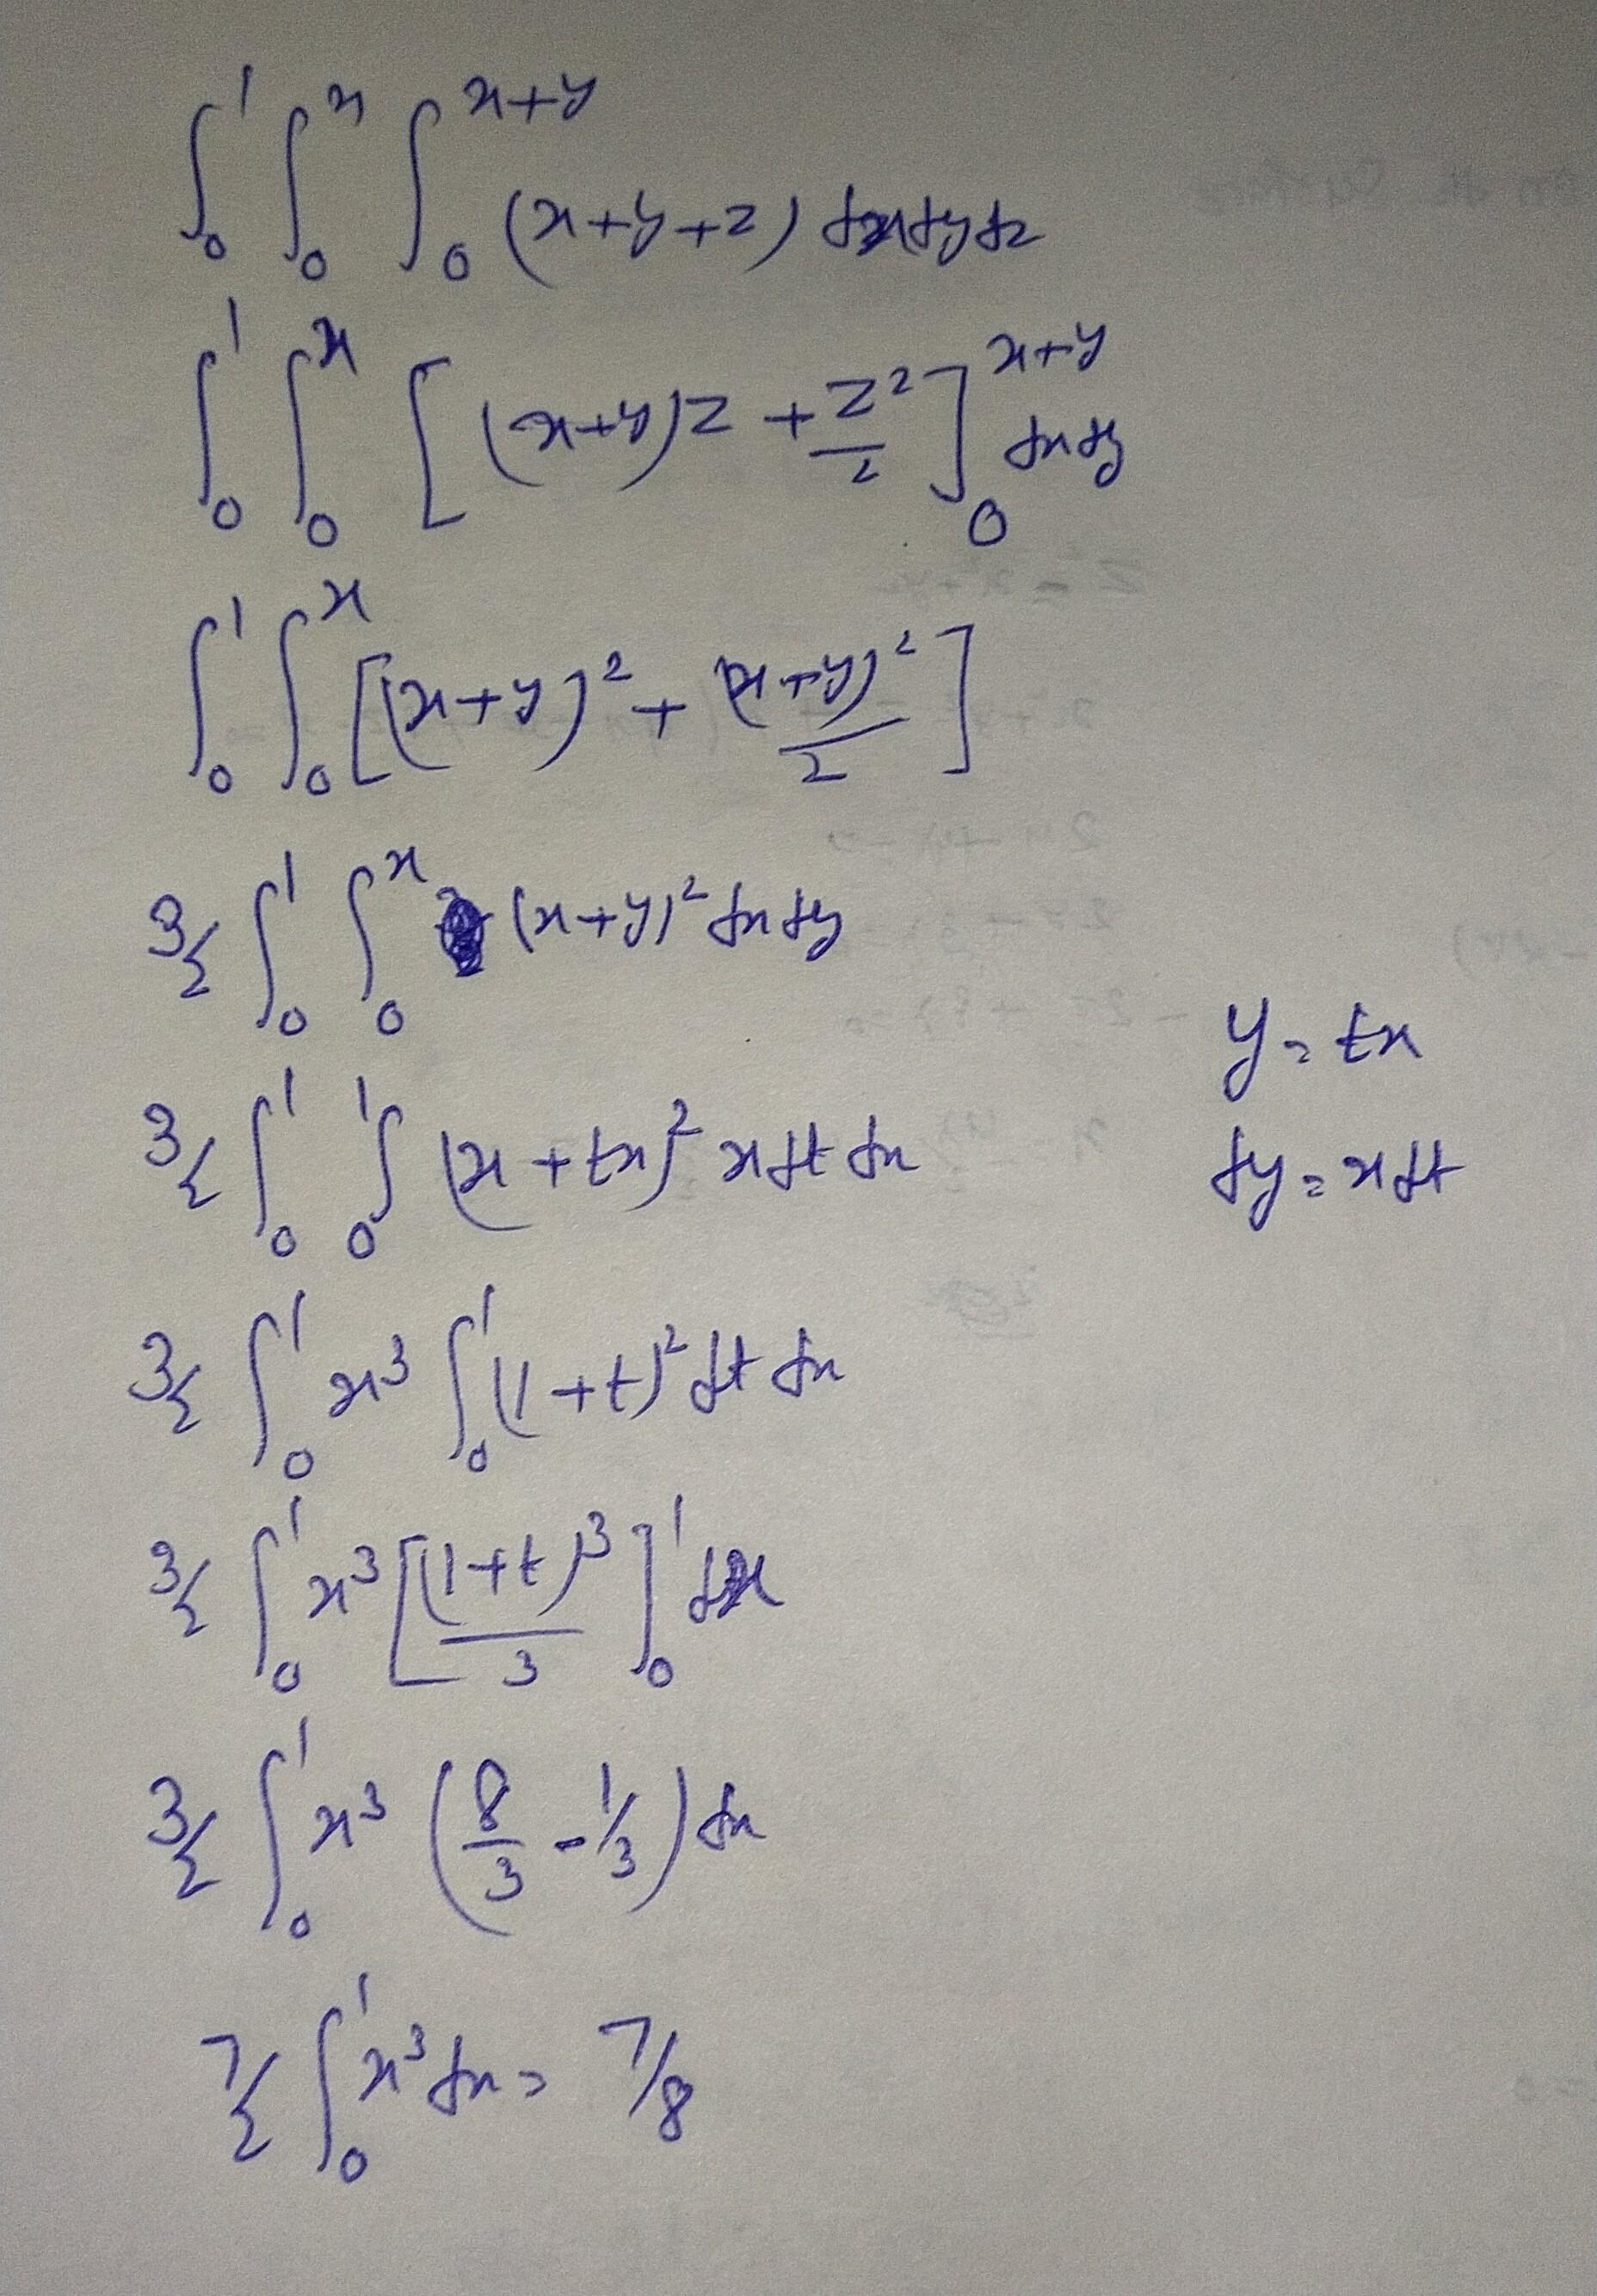 ∫₀¹ ∫₀ˣ ∫₀ˣ⁺ʸ (x+y+z) dx dy dz
∫₀¹ ∫₀ˣ [(x+y)z + z²/2]₀ˣ⁺ʸ dx dy
∫₀¹ ∫₀ˣ [(x+y)² + (x+y)²/2]
3/2 ∫₀¹ ∫₀ˣ (x+y)² dx dy
y = tx
3/2 ∫₀¹ ∫₀¹ (x+tx)² x dt dx
dy = x dt
3/2 ∫₀¹ x³ ∫₀¹ (1+t)² dt dx
3/2 ∫₀¹ x³ [(1+t)³/3]₀¹ dx
3/2 ∫₀¹ x³ (8/3 - 1/3) dx
7/2 ∫₀¹ x³ dx = 7/8